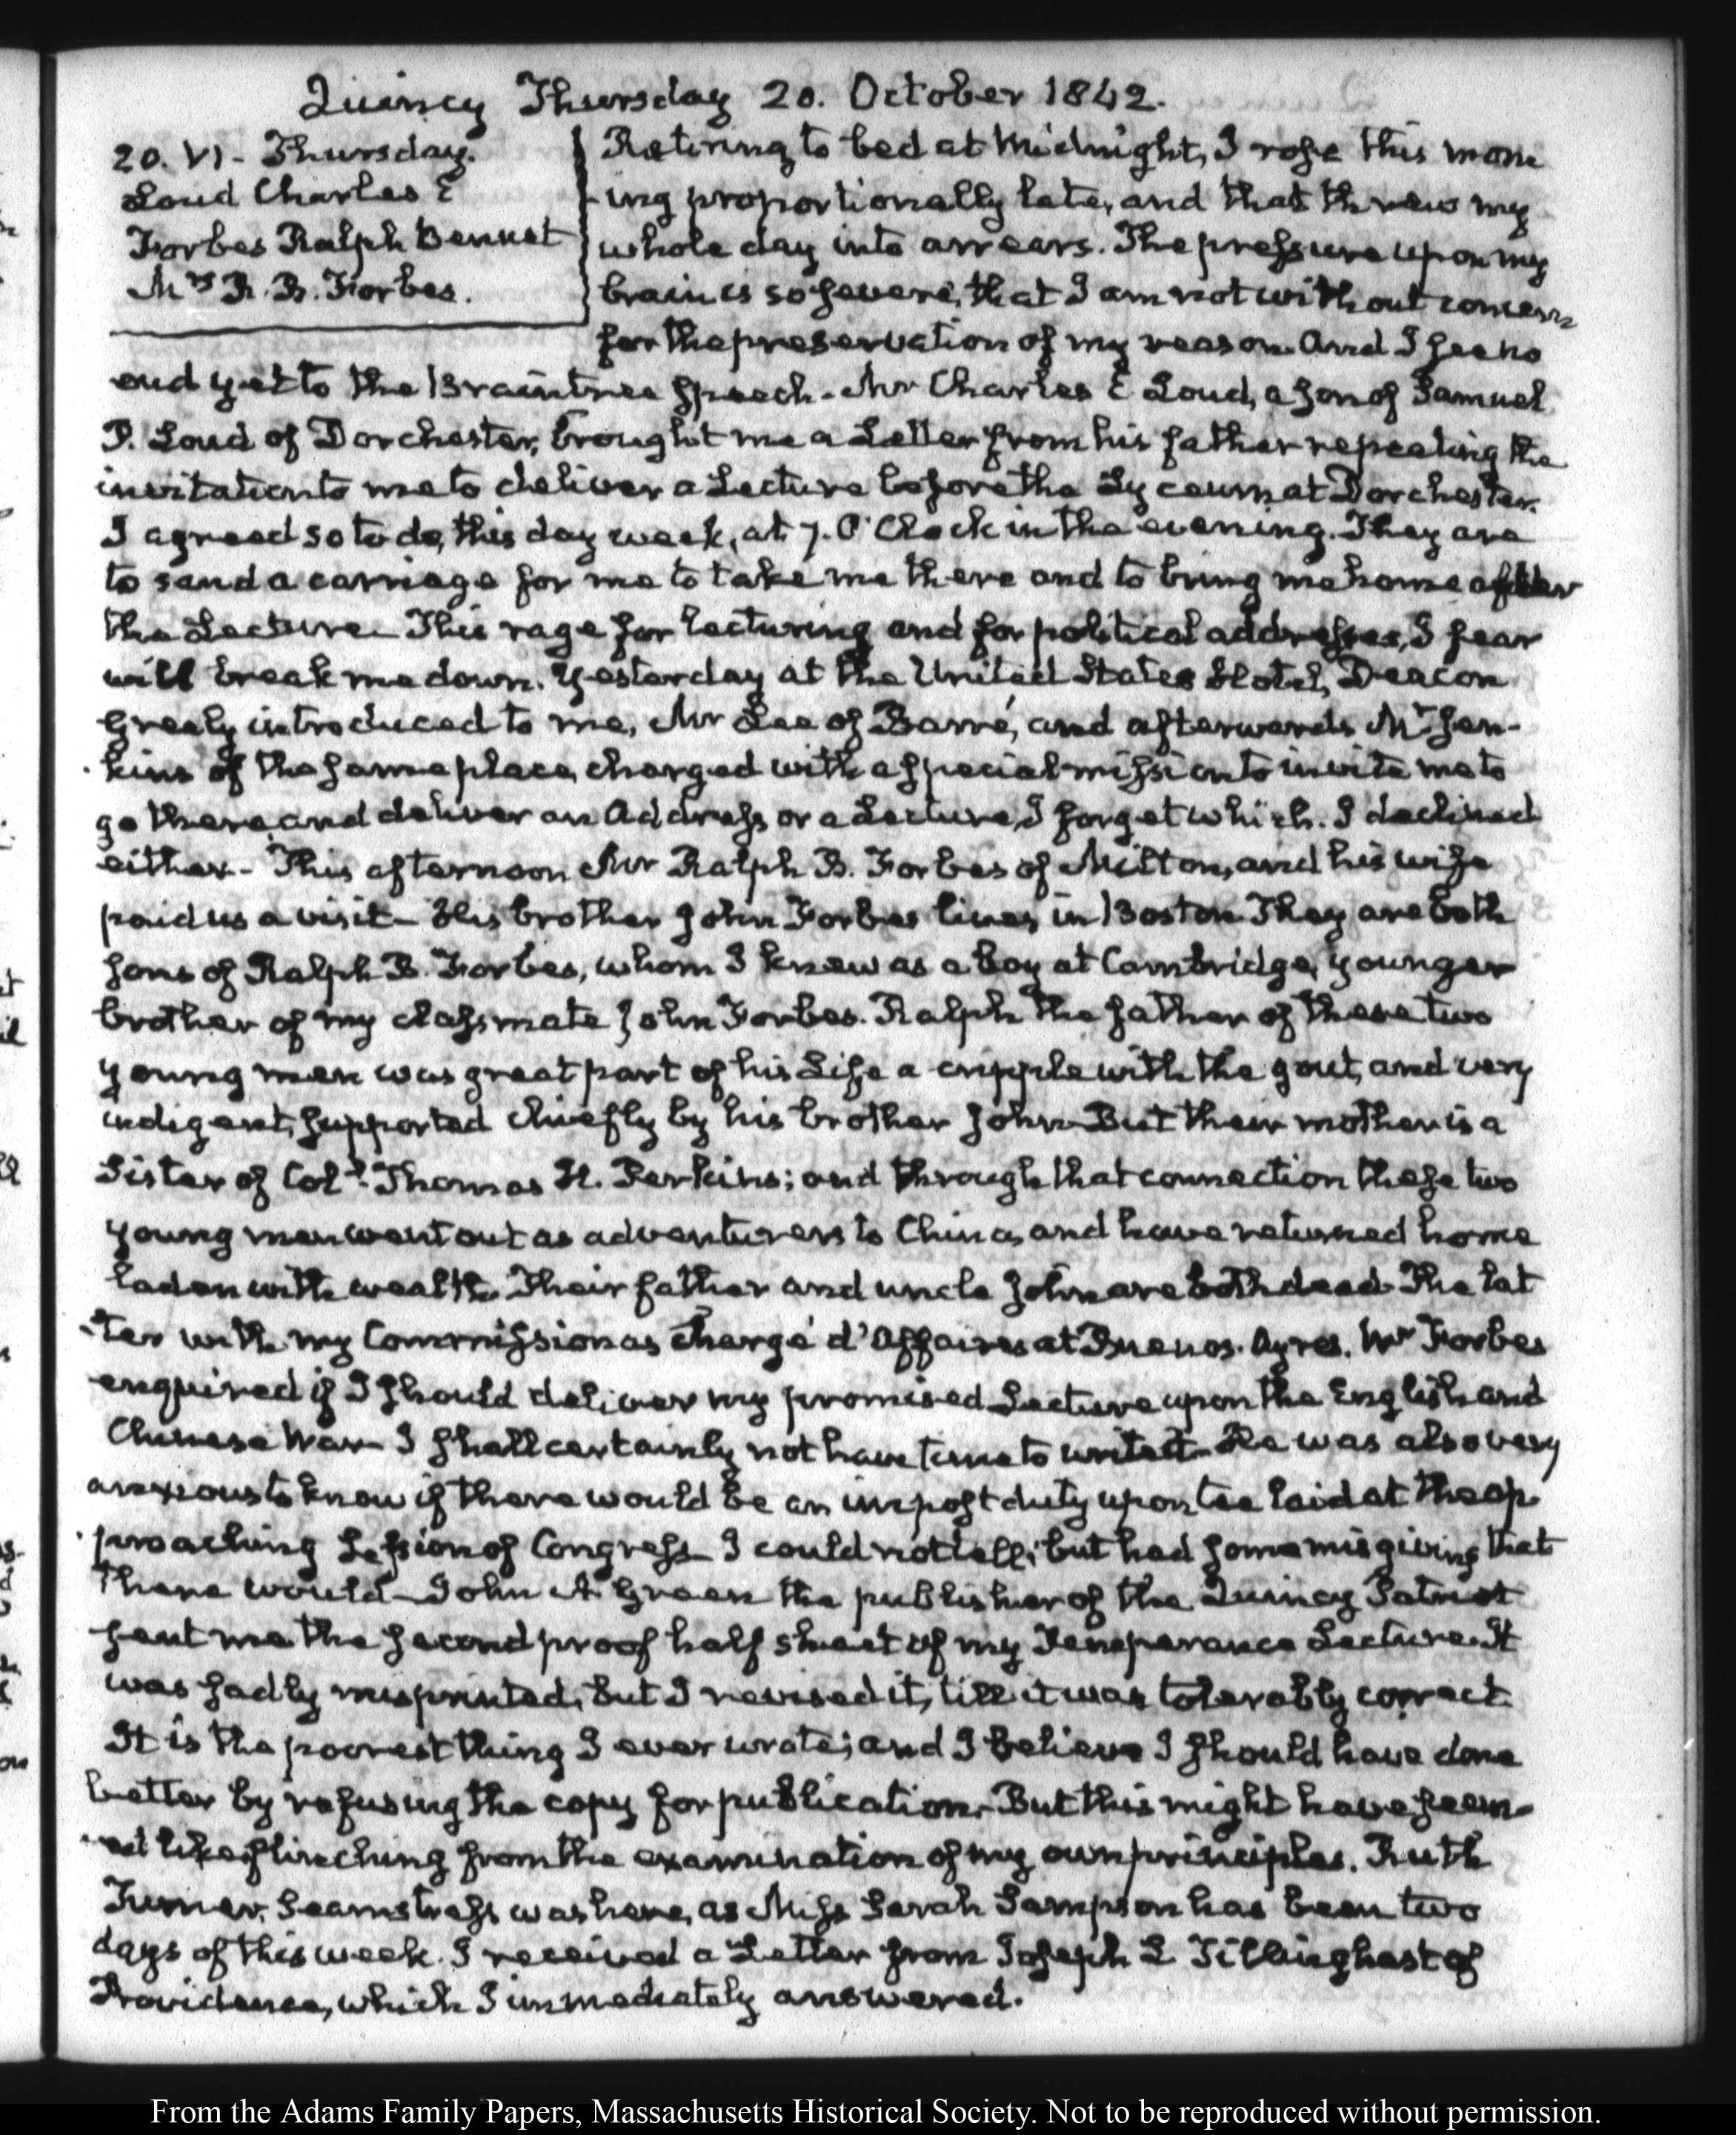 Quincy Thursday 20. October 1842.
20. VI. Thursday.
Loud Charles E
Forbes Ralph Bennet
Mrs R. B. Forbes.
Retiring to bed at Midnight, I rose this morn
-ing proportionally late, and that threw my
whole day into arrears. The pressure upon my
brain is so severe, that I am not without concern
for the preservation of my reason. And I see no
end yet to the Braintree speech. Mr Charles E Loud, a son of Samuel
P. Loud of Dorchester, brought me a Letter from his father repeating the
invitation to me to deliver a Lecture before the Lyceum at Dorchester.
I agreed so to do, this day week, at 7. O'Clock in the evening. They are
to send a carriage for me to take me there and to bring me home after
the Lecture. This rage for lecturing and for political addresses, I fear
will break me down. Yesterday at the United States Hotel, Deacon
Grealy introduced to me, Mr Lee of Barré, and afterwards Mr Jen-
-kins of the same place, charged with a special mission to invite me to
go there, and deliver an Address or a Lecture, I forget which. I declined
either. This afternoon Mr Ralph B. Forbes of Milton, and his wife
paid us a visit. His brother John Forbes lives in Boston. They are both
sons of Ralph B. Forbes, whom I knew as a boy at Cambridge, younger
brother of my classmate John Forbes. Ralph the father of these two
young men was great part of his Life a cripple with the gout, and very
indigent, supported chiefly by his brother John. But their mother is a
Sister of Coll. Thomas H. Perkins; and through that connection these two
young men went out as adventurers to China, and have returned home
laden with wealth. Their father and uncle John are both dead. The lat
-ter with my Commission as Chargé d'Affaires at Buenos-Ayres. Mr Forbes
enquired if I should deliver my promised Lecture upon the English and
Chinese War. I shall certainly not have time to write it. He was also very
anxious to know if there would be an impost duty upon tea laid at the ap
-proaching Session of Congress. I could not tell; but had some misgiving that
there would. John A Green the publisher of the Quincy Patriot
sent me the second proof half sheet of my Temperance Lecture. It
was sadly misprinted, but I revised it, till it was tolerably correct.
It is the poorest thing I ever wrote; and I believe I should have done
better by refusing the copy for publication. But this might have seem-
-ed like flinching from the examination of my own principles. Ruth
Turner, Seamstress was here, as Miss Sarah Sampson has been two
days of this week. I received a Letter from Joseph L Tillinghast of
Providence, which I immediately answered.
From the Adams Family Papers, Massachusetts Historical Society. Not to be reproduced without permission.